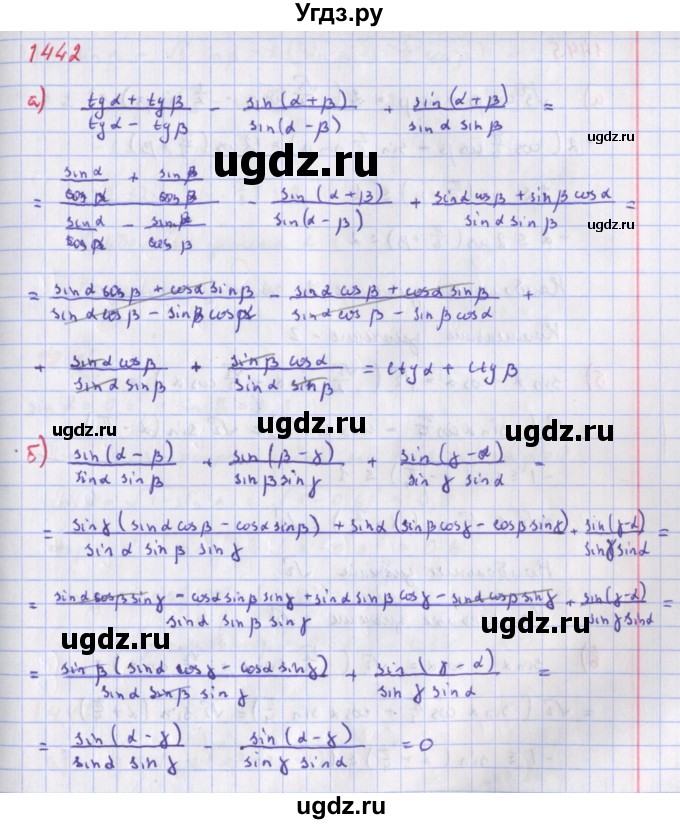 Угдз.ру
1442
а) (tgα + tgβ)/(tgα − tgβ) − sin(α+β)/sin(α−β) + sin(α+β)/(sinα sinβ) =
ugdz.ru
= (sinα/cosα + sinβ/cosβ)/(sinα/cosα − sinβ/cosβ) − sin(α+β)/sin(α−β) + (sinα cosβ + sinβ cosα)/(sinα sinβ) =
ugdz.ru ugdz.ru
= (sinα cosβ + cosα sinβ)/(sinα cosβ − sinβ cosα) − (sinα cosβ + cosα sinβ)/(sinα cosβ − sinβ cosα) +
ugdz.ru
+ (sinα cosβ)/(sinα sinβ) + (sinβ cosα)/(sinα sinβ) = ctgα + ctgβ
ugdz.ru
ugdz.ru ugdz.ru
б) sin(α−β)/(sinα sinβ) + sin(β−γ)/(sinβ sinγ) + sin(γ−α)/(sinγ sinα) =
ugdz.ru
= (sinγ(sinα cosβ − cosα sinβ) + sinα(sinβ cosγ − cosβ sinγ))/(sinα sinβ sinγ) + sin(γ−α)/(sinγ sinα) =
= (sinα cosβ sinγ − cosα sinβ sinγ + sinα sinβ cosγ − sinα cosβ sinγ)/(sinα sinβ sinγ) + sin(γ−α)/(sinγ sinα) =
ugdz.ru ugdz.ru
= (sinβ(sinα cosγ − cosα sinγ))/(sinα sinβ sinγ) + sin(γ−α)/(sinγ sinα) =
ugdz.ru
= sin(α−γ)/(sinα sinγ) − sin(α−γ)/(sinγ sinα) = 0
ugdz.ru